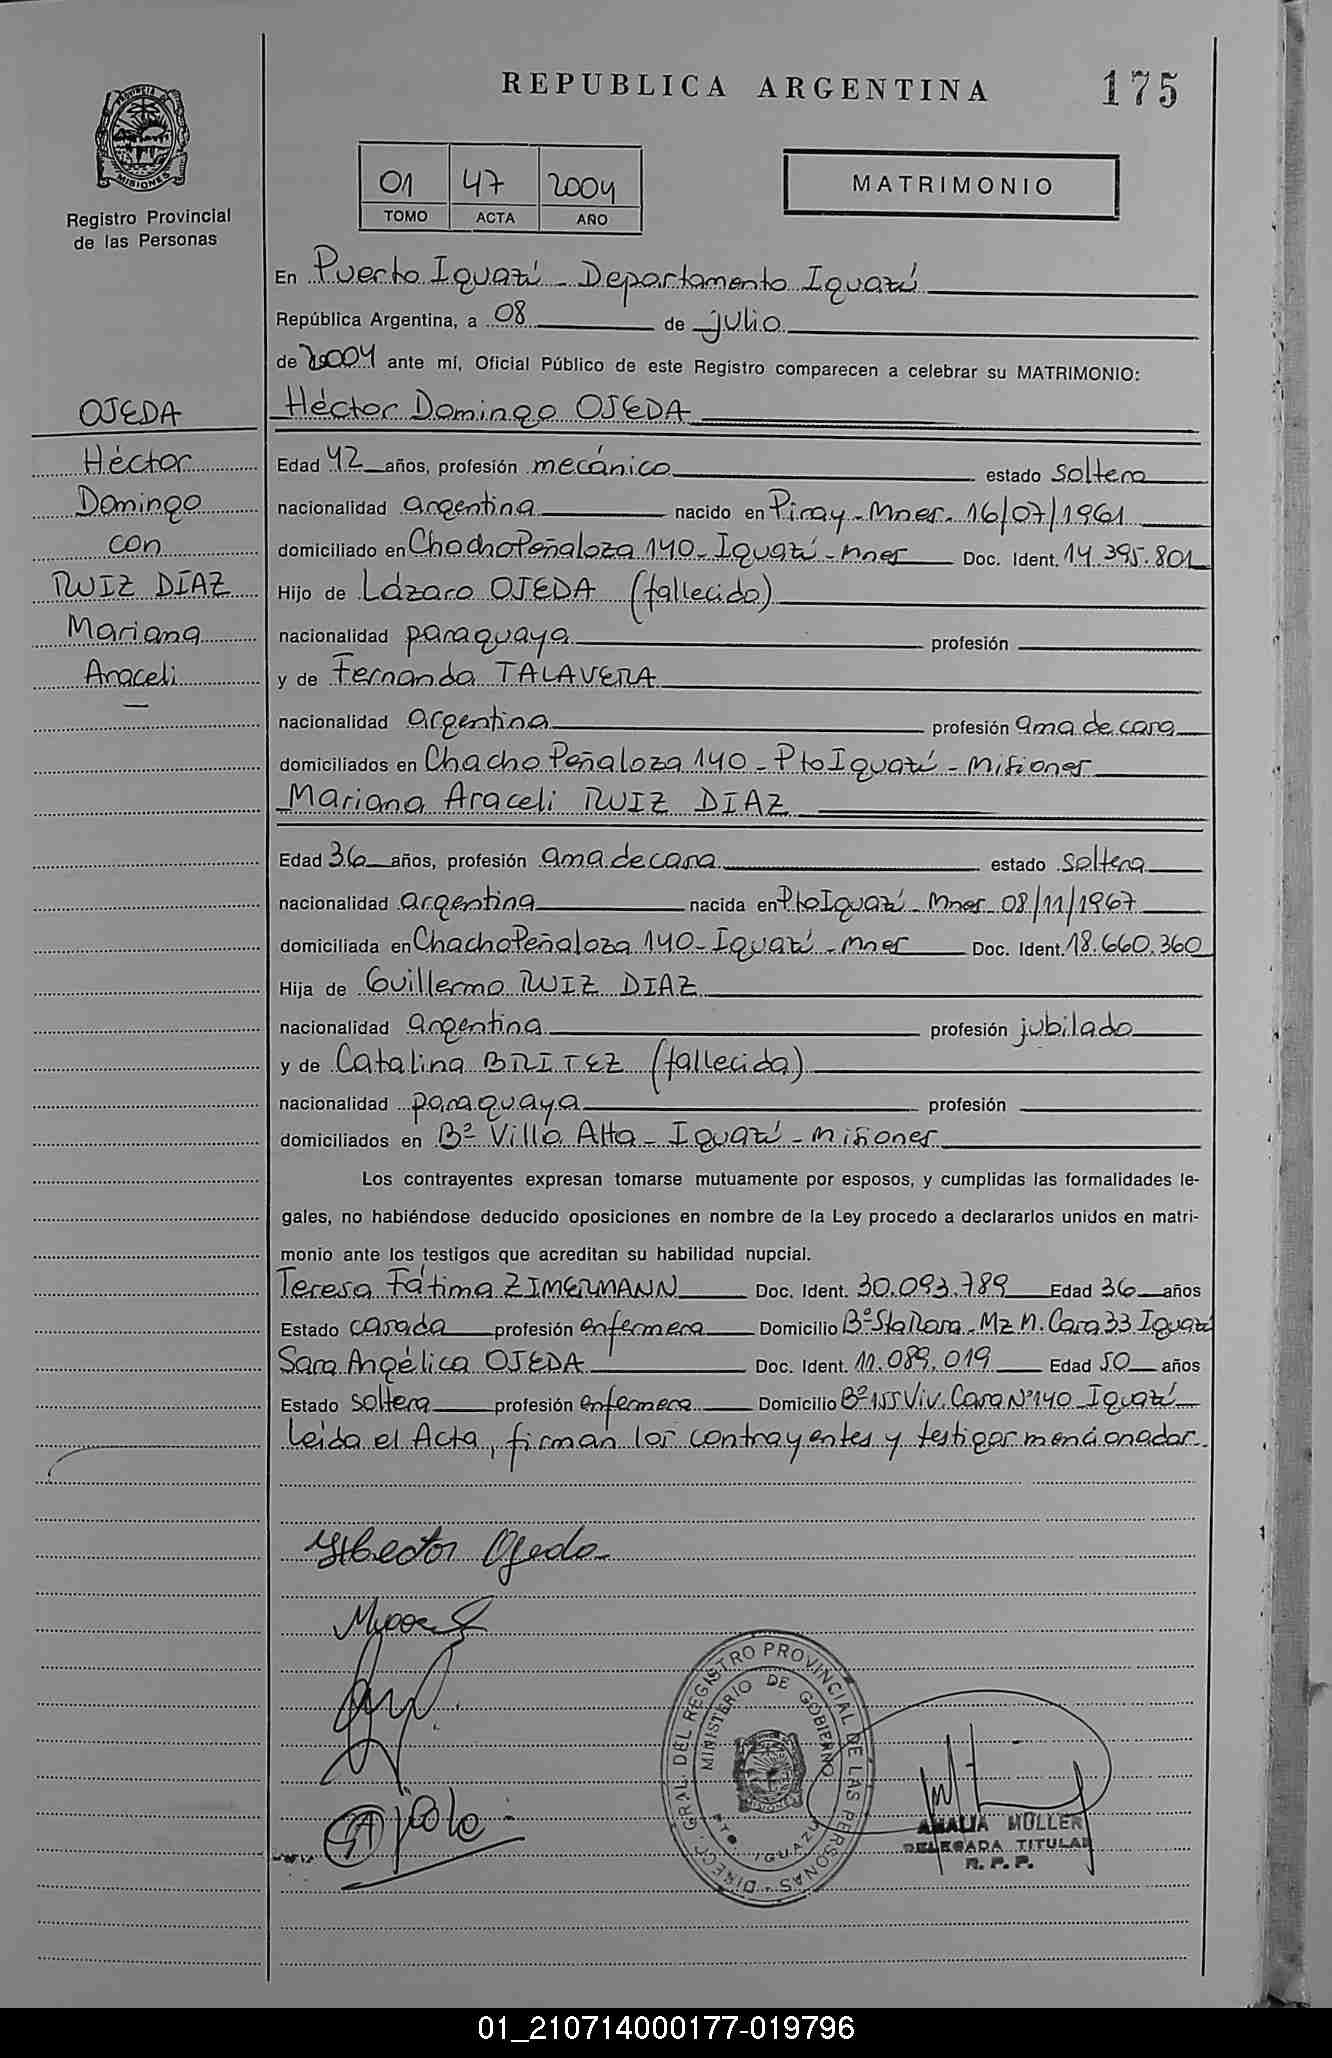 REPUBLICA ARGENTINA
175
PROVINCIA DE
MISIONES
Registro Provincial
de las Personas
01 47 2004
TOMO ACTA AÑO
MATRIMONIO
En Puerto Iguazú - Departamento Iguazú
República Argentina, a 08 de julio
de 2004 ante mí, Oficial Público de este Registro comparecen a celebrar su MATRIMONIO:
OJEDA
Héctor
Domingo
con
RUIZ DÍAZ
Mariana
Araceli
Héctor Domingo OJEDA
Edad 42 años, profesión mecánico estado soltero
nacionalidad argentina nacido en Piray - Mnes. 16/07/1961
domiciliado en Chacho Peñaloza 140 - Iguazú - Mnes Doc. Ident. 14.395.801
Hijo de Lázaro OJEDA (fallecido)
nacionalidad paraguaya profesión
y de Fernanda TALAVERA
nacionalidad argentina profesión ama de casa
domiciliados en Chacho Peñaloza 140 - Pto Iguazú - Misiones
Mariana Araceli RUIZ DIAZ
Edad 36 años, profesión ama de casa estado soltera
nacionalidad argentina nacida en Pto Iguazú - Mnes 08/11/1967
domiciliada en Chacho Peñaloza 140 - Iguazú - Mnes Doc. Ident. 18.660.360
Hija de Guillermo RUIZ DIAZ
nacionalidad argentina profesión jubilado
y de Catalina BRITEZ (fallecida)
nacionalidad paraguaya profesión
domiciliados en Bº Villa Alta - Iguazú - Misiones
Los contrayentes expresan tomarse mutuamente por esposos, y cumplidas las formalidades le-
gales, no habiéndose deducido oposiciones en nombre de la Ley procedo a declararlos unidos en matri-
monio ante los testigos que acreditan su habilidad nupcial.
Teresa Fátima ZIMERMANN Doc. Ident. 30.093.789 Edad 36 años
Estado casada profesión enfermera Domicilio Bº Sta Rosa - Mz M. Casa 33 Iguazú
Sara Angélica OJEDA Doc. Ident. 11.089.019 Edad 50 años
Estado soltera profesión enfermera Domicilio Bº 155 Viv. Casa Nº 140 - Iguazú
Leída el Acta, firman los contrayentes y testigos mencionados.
Hector Ojeda
DIREC. GRAL. DEL REGISTRO PROVINCIAL DE LAS PERSONAS
MINISTERIO DE GOBIERNO
MISIONES
PTO. IGUAZU
AMALIA MÜLLER
DELEGADA TITULAR
R. P. P.
01_210714000177-019796